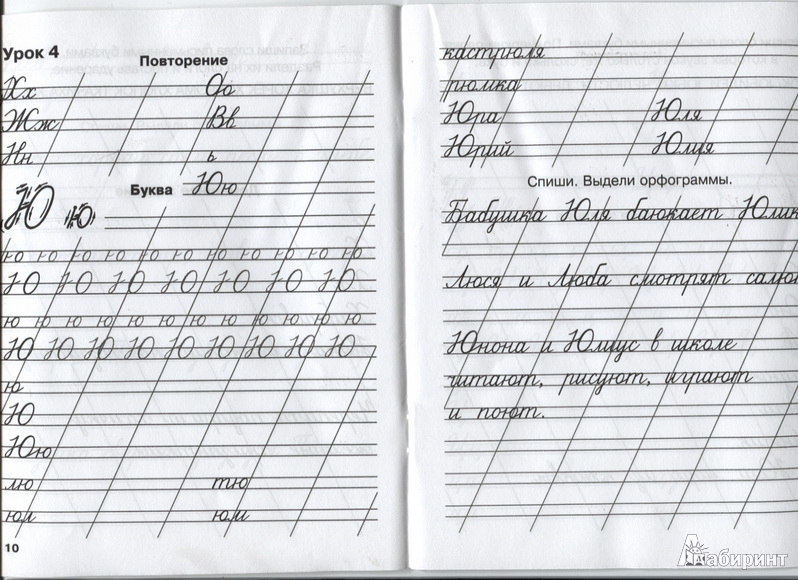 Урок 4
Повторение
Хх Оо
Жж Вв
Нн ь
Буква Юю
Ю ю
ю ю ю ю ю ю ю ю ю ю ю ю ю
Ю Ю Ю Ю Ю Ю Ю
ю ю ю ю ю ю ю ю ю ю ю ю
Ю Ю Ю Ю Ю Ю Ю Ю Ю
ю
Ю
Юю
лю тю
юл юм
10
кастрюля
рюмка
Юра Юля
Юрий Юлия
Спиши. Выдели орфограммы.
Бабушка Юля баюкает Юлик
Люся и Люба смотрят салю
Юнона и Юлиус в школе
читают, рисуют, играют
и поют.
Лабиринт